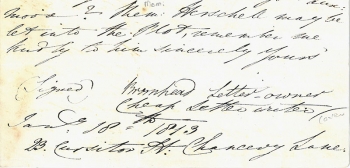 moira ? them: Herschell may be
let into the Plot, remember me
kindly to him sincerely yours
(Signed) Bromhead letter owner
Cheap Letter writer
Jan.y 18th 1813
23. Cursitor St. Chancery Lane.